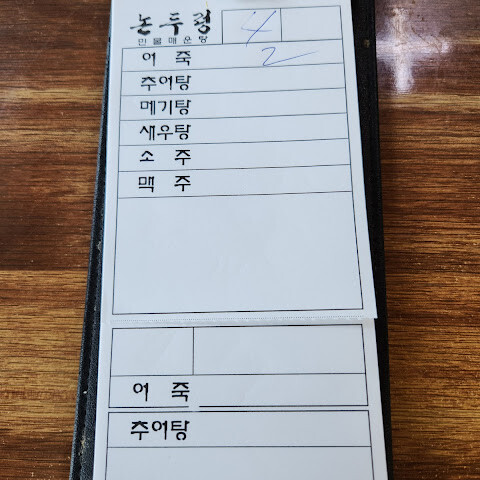 논두렁 4
민물매운탕
어 죽 2
추어탕
메기탕
새우탕
소 주
맥 주
어 죽
추어탕